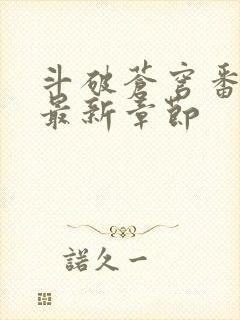 斗破苍穹番
最新章节
諾久一